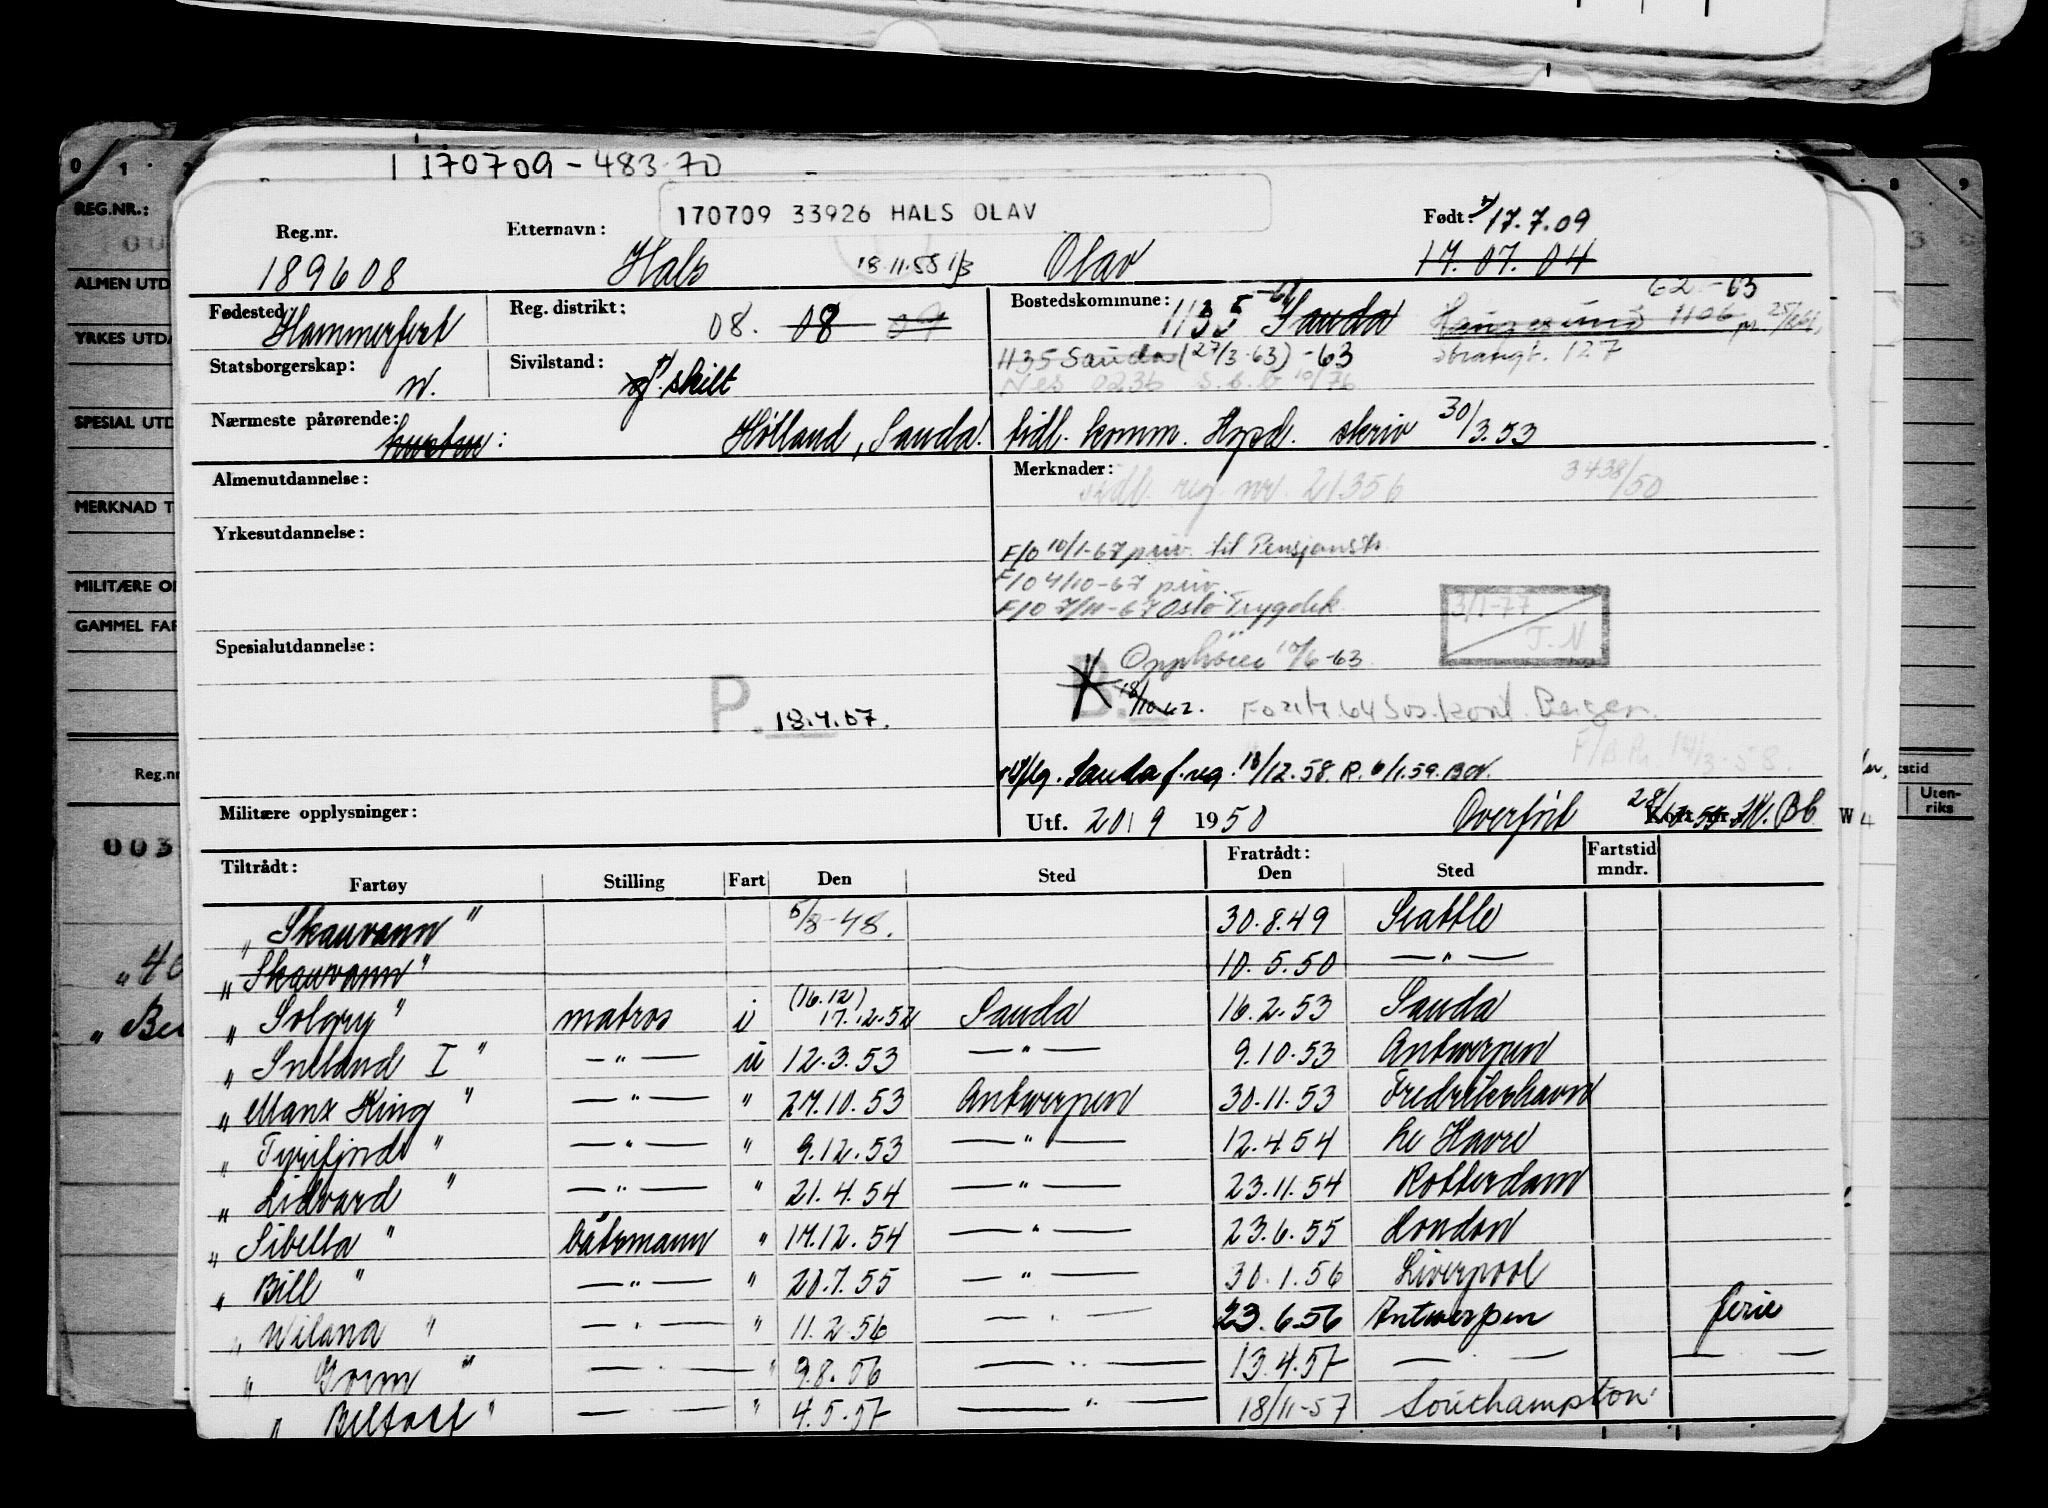 170709-483 70
170709 33926 HALS OLAV
Reg.nr. Etternavn: Født: 17.7.09
189608 Hals 18.11.55 1/3 Olav 17.07.04
Fødested Hammerfest Reg. distrikt: 08. 08 09 Bostedskommune: 1135 Sauda Haugesund 1106 62-63
Statsborgerskap: N. Sivilstand: skilt 1135 Sauda (27/3-63) -63 Strandgt. 127
Nes 0236 10/76
Nærmeste pårørende: hustru: Hølland, Sauda. tidl. komm. Hopd. skriv 30/3.53
Almenutdannelse: Merknader: tidl. reg. nr. 21356 3438/50
Yrkesutdannelse:
F/O 10/1-67 priv. til Pensjonstr.
F/O 4/10-67 priv.
F/O 7/11-67 Oslo Trygdek.
3/1-77
T.N
Spesialutdannelse: Opphører 10/6-63
P. 18.4.57. B. 18/10 62. FO 21/7.64 Sos.kont. Bergen.
F/B.Ru. 14/3-58.
Sauda f. reg. 18/12.58. R. 6/1.59. BW.
Militære opplysninger: Utf. 20/9 1950 Overført 28/ Kort nr. W 4
Tiltrådt: Fratrådt: Fartstid
Fartøy Stilling Fart Den Sted Den Sted mndr.
„Skauvann" 5/8-48. 30.8.49 Seattle
„Skauvann" 10.5.50 —"—
„Solgry" matros i (16.12) 17.12.52 Sauda 16.2.53 Sauda
„Sneland I" —"— u 12.3.53 —"— 9.10.53 Antwerpen
„Manx King" —"— " 27.10.53 Antwerpen 30.11.53 Fredrikshavn
„Tyrifjord" —"— " 9.12.53 —"— 12.4.54 Le Havre
„Lidvard" —"— " 21.4.54 —"— 23.11.54 Rotterdam
„Sibella" båtsmann " 17.12.54 —"— 23.6.55 London
„Bill" —"— " 20.7.55 —"— 30.1.56 Liverpool
„Wilana" —"— " 11.2.56 —"— 23.6.56 Antwerpen ferie
„Gorm" —"— " 9.8.56 —"— 13.4.57 —"— —"—
„Belfast" —"— " 4.5.57 —"— 18/11-57 Southampton
REG.NR.:
ALMEN UTD
YRKES UTDA
SPESIAL UTD
MERKNAD T
MILITÆRE OP
GAMMEL FAR
Reg.nr
003
Uten-
riks